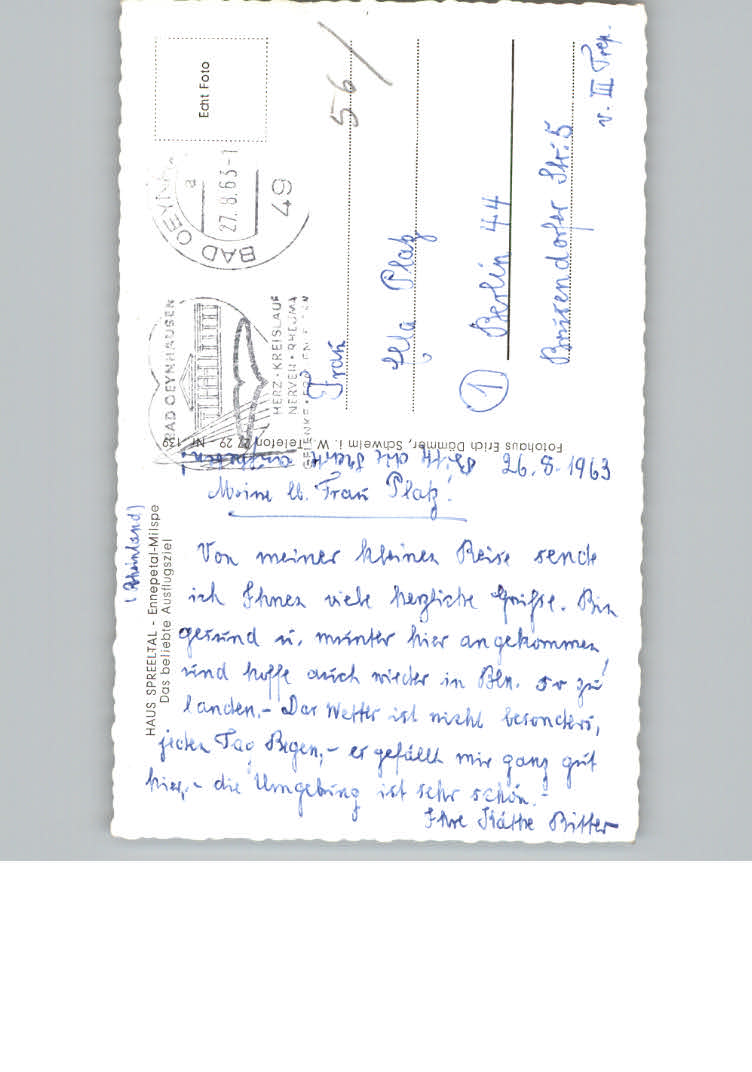 Echt Foto
BAD OEYNH
a
27.8.63-1
49
BAD OEYNHAUSEN
HERZ·KREISLAUF
NERVEN·RHEUMA
56/
Frau
Ella Platz
1 Berlin 44
Briesendorfer Str. 5
v. III Trep.
Fotohaus Erich Dämmer, Schwelm i. W. Telefon 27 29 - Nr. 139
HAUS SPREELTAL - Ennepetal-Milspe
Das beliebte Ausflugsziel
(Rheinland)
Bitte die Karte
26.8.1963
Meine lb. Frau Platz!
Von meiner kleinen Reise sende
ich Ihnen viele herzliche Grüße. Bin
gesund u. munter hier angekommen
und hoffe auch wieder in Bln. so zu
landen.- Das Wetter ist nicht besonders,
jeden Tag Regen,- es gefällt mir ganz gut
hier,- die Umgebung ist sehr schön.-
Ihre Käthe Ritter